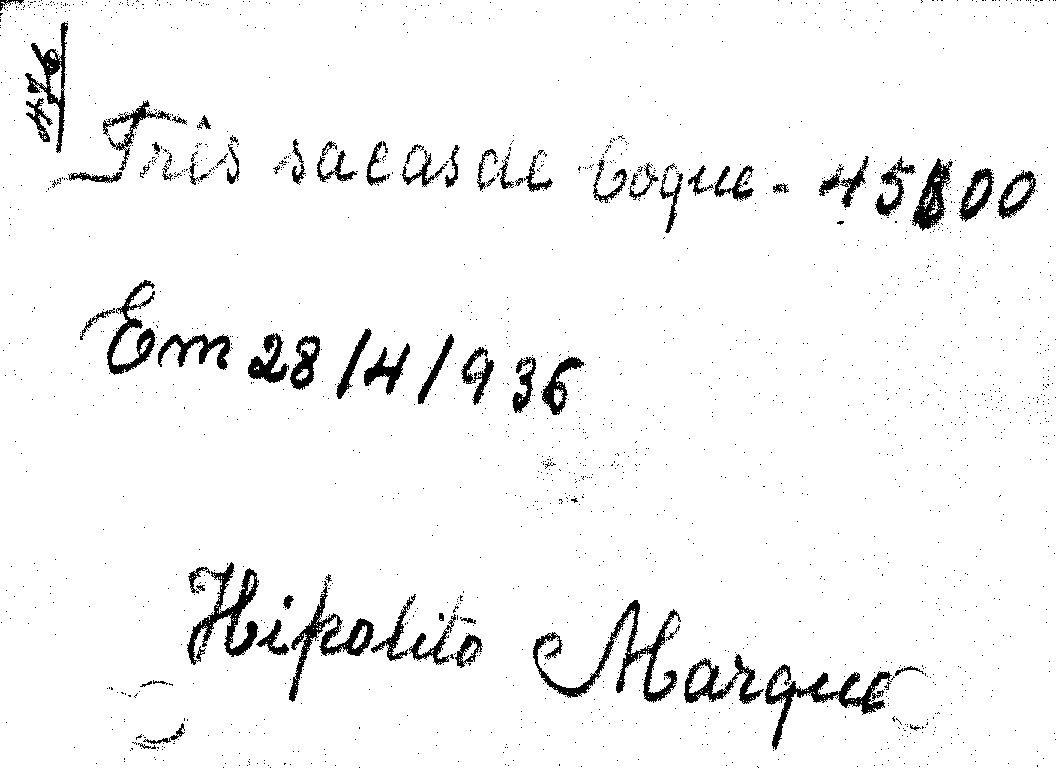 Três sacas de Coque - 45$00
Em 28/4/936
Hipolito Marque